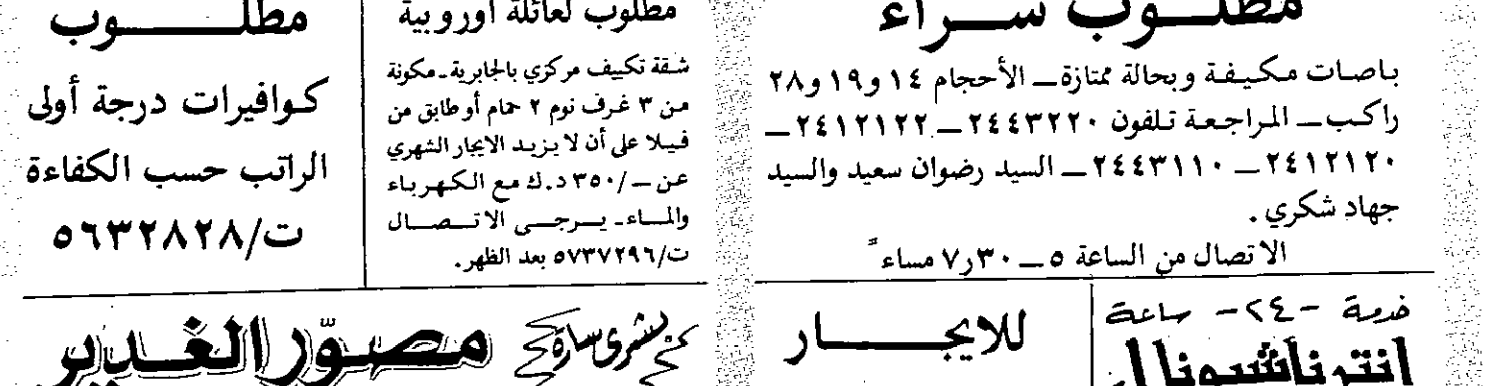 مطلـــوب شـــراء
باصات مكيفة وبحالة ممتازة ــ الأحجام ١٤ و١٩ و٢٨
راكب ــ المراجعة تلفون ٢٤٤٣٢٢٠ ــ ٢٤١٢١٢٢ ــ
٢٤١٢١٢٠ ــ ٢٤٤٣١١٠ ــ السيد رضوان سعيد والسيد
جهاد شكري .
الاتصال من الساعة ٥ ــ ٧٫٣٠ مساءً
مطلوب لعائلة أوروبية
شقة تكييف مركزي بالجابرية ـ مكونة
من ٣ غرف نوم ٢ حمام أو طابق من
فيلا على أن لا يزيد الايجار الشهري
عن ــ/٣٥٠ د.ك مع الكهرباء
والماء ـ يرجى الاتصال
ت/٥٧٣٧٢٩٦ بعد الظهر.
مطلـــــوب
كوافيرات درجة أولى
الراتب حسب الكفاءة
ت/٥٦٣٢٨٢٨
خدمة -٢٤- ساعة
انترناشيونال
للايجـــــار
بشرى سارة
مصوّر الغدير